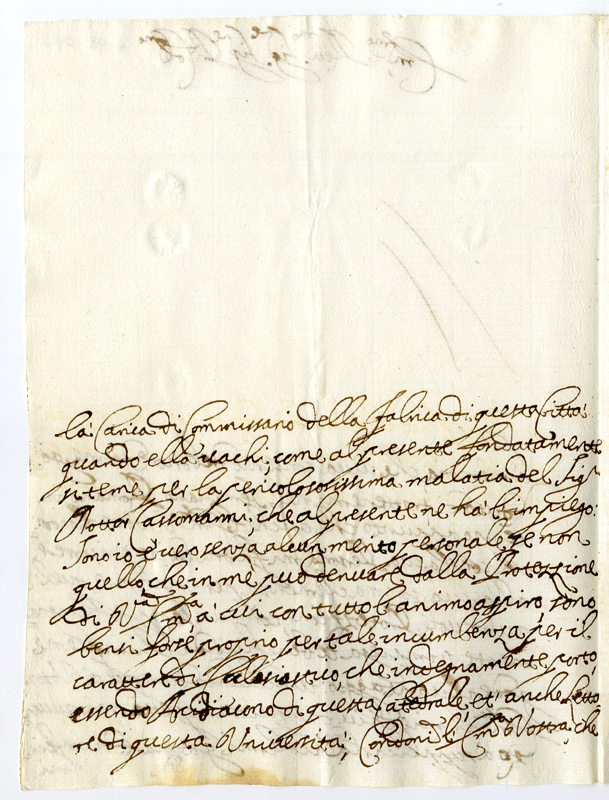 la Carica di Commissario della Fabrica di questa Città:
quando ella vachi, come al presente fondatamente
si teme per la pericolosissima malatia del Sigr
Dottor Cassomanni, che al presente ne ha l'impiego:
Sono io è vero senza alcun merito personale, se non
quello che in mè può derivare dalla Protezzione
di Vra Emza à cui con tutto l'animo aspiro, sono
bensi forse proprio per tale incumbenza per il
carattere di Eclesiastico, che indegnamente porto,
essendo Arcidiacono di questa Catedrale, et anche Letto
re di questa Università; Condoni l'Emza Vostra, che